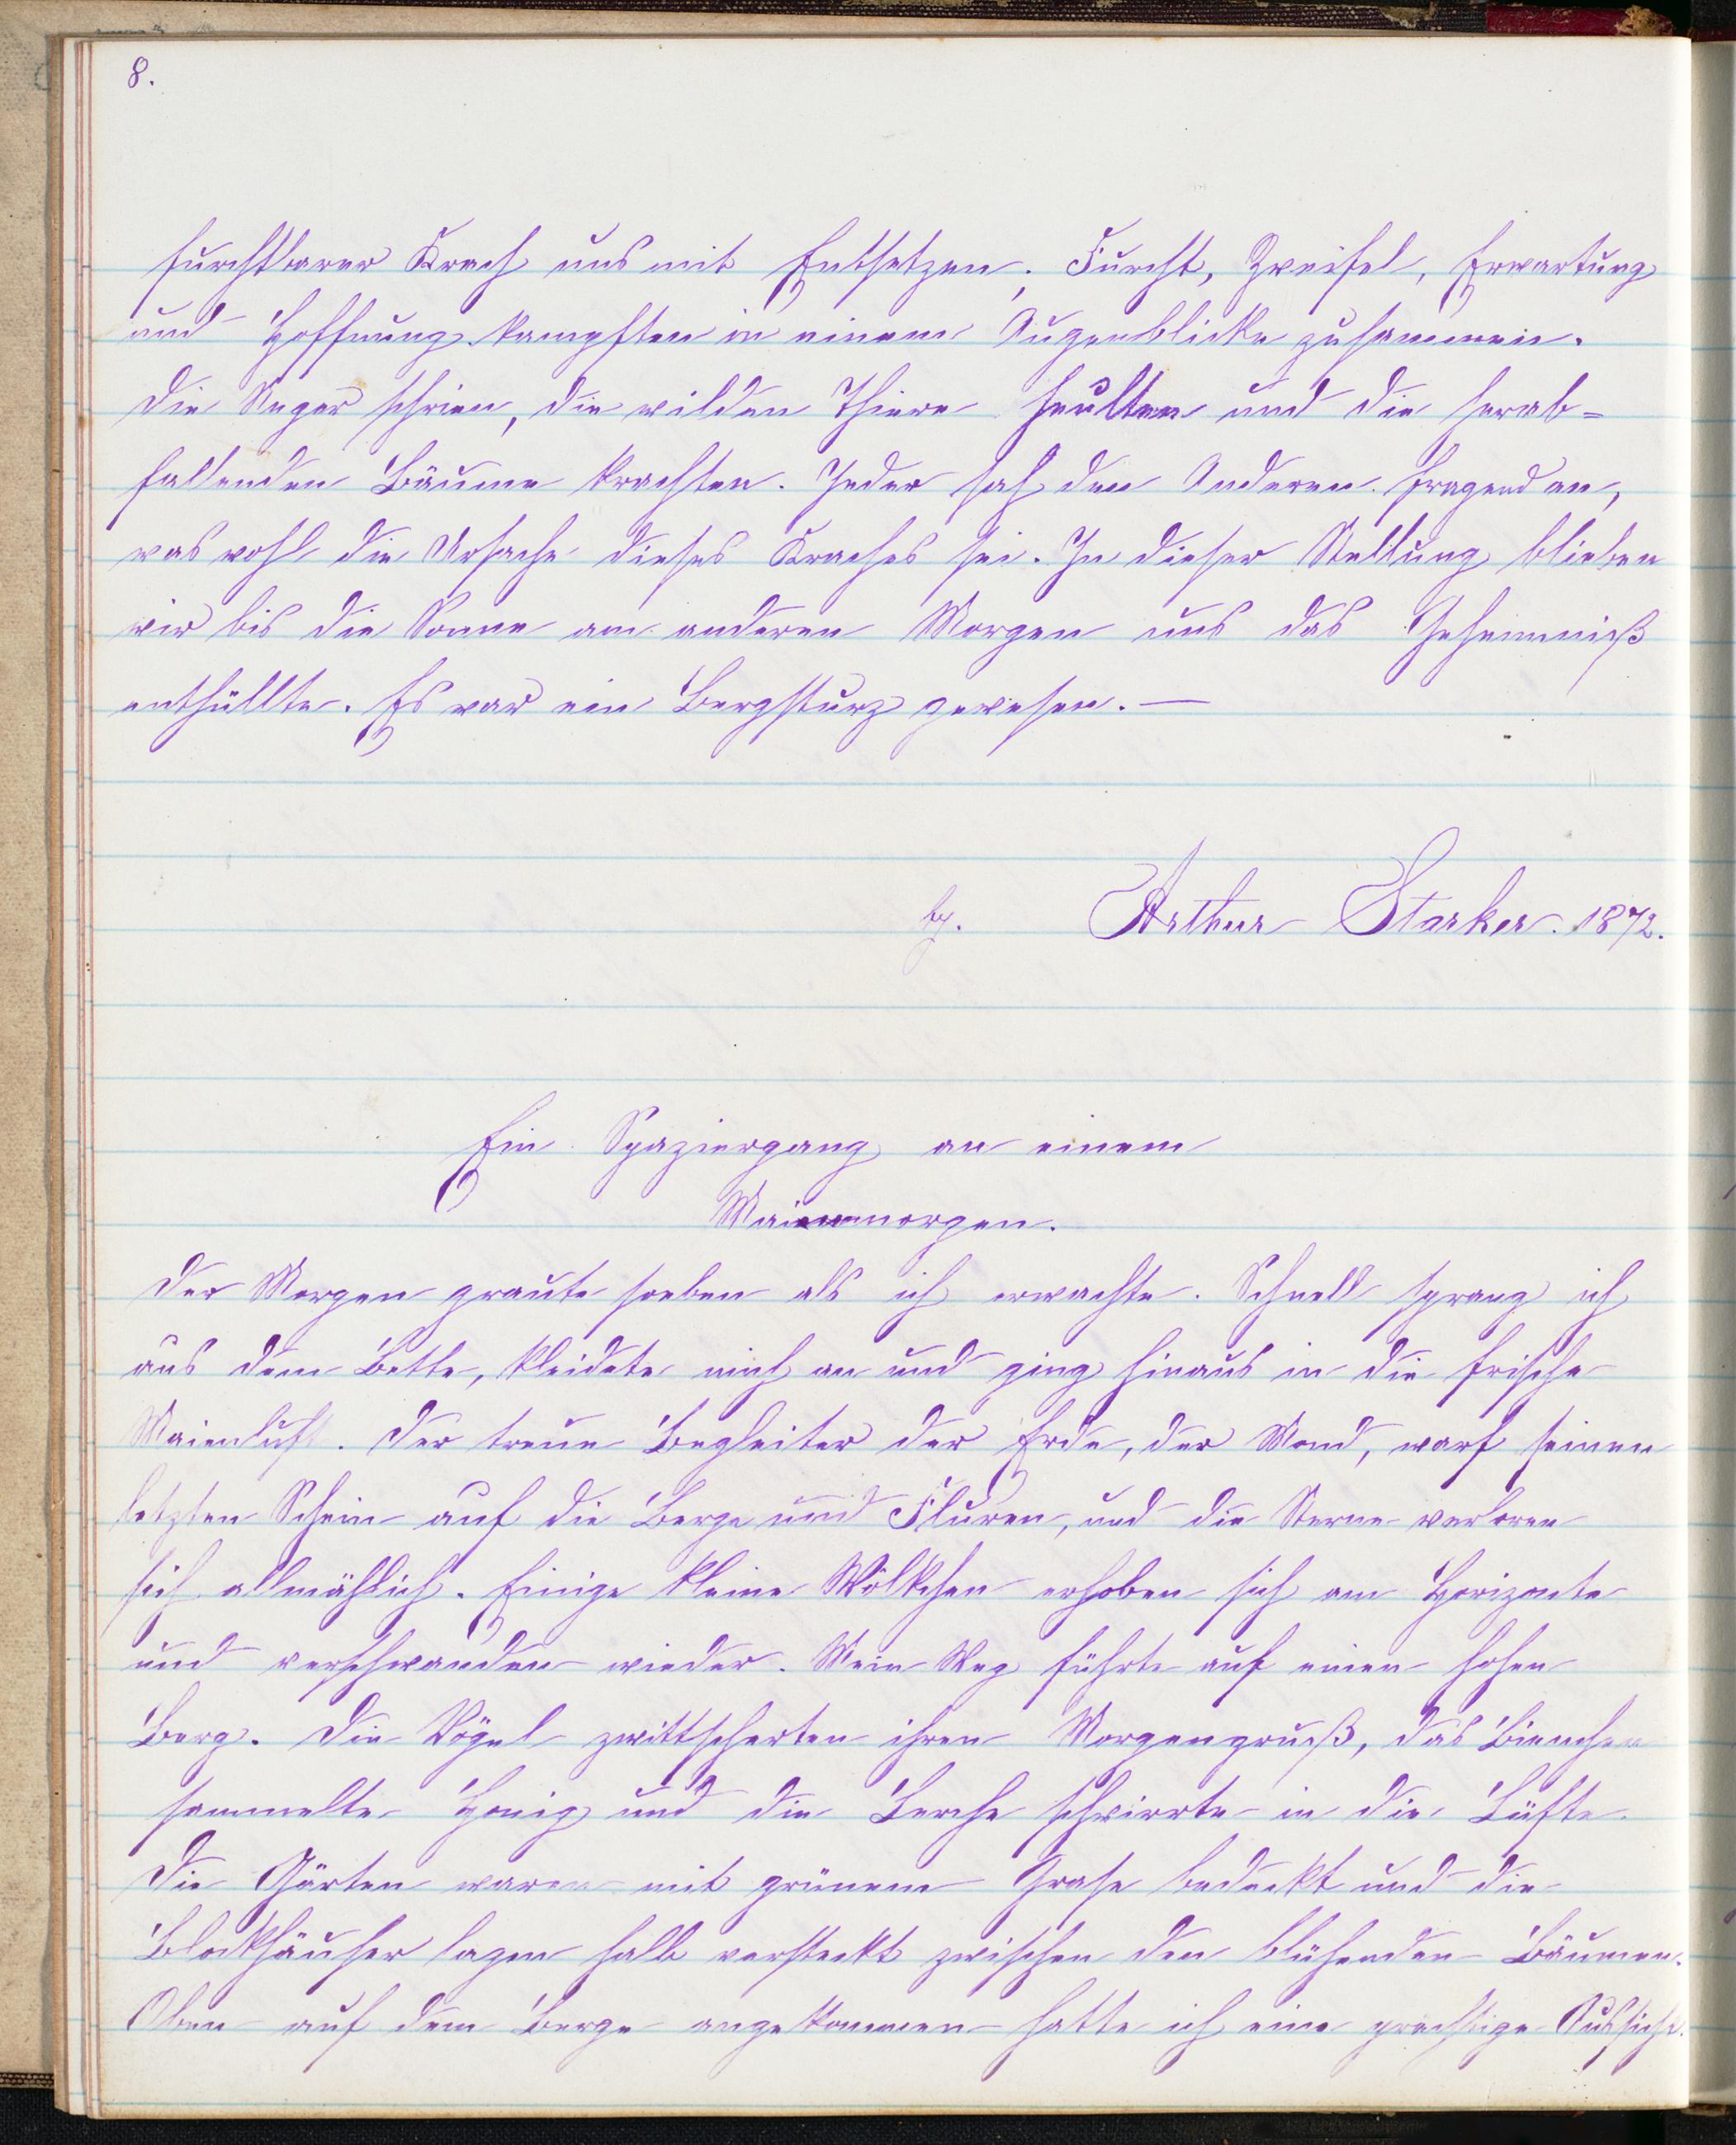 8.
furchtbarer Krach uns mit Entsetzen; Furcht, Zweifel, Erwartung
und Hoffnung kampften in einem Augenblicke zusammen.
Die Neger schrien, die wilden Thiere heulten und die herab=
fallenden Bäume krachten. Jeder sah den Anderen fragend an,
was wohl die Ursache dieses Kraches sei. In dieser Stellung blieben
wir bis die Sonne am anderen Morgen uns das Geheimniß
enthüllte. Es war ein Bergsturz gewesen. —
by. Arthur Starker. 1872.
Ein Spaziergang an einem
Maienmorgen.
Der Morgen graute soeben als ich erwachte. Schnell sprang ich
aus dem Bette, kleidete mich an und ging hinaus in die frische
Maienluft. Der treue Begleiter der Erde, der Mond, warf seinen
letzten Schein auf die Berge und Fluren, und die Sterne verloren
sich allmählich. Einige kleine Wölkchen erhoben sich am Horizonte
und verschwanden wieder. Mein Weg führte auf einen hohen
Berg. Die Vögel zwittscherten ihren Morgengruß, das Bienchen
sammelte Honig und die Lerche schwirrte in die Lüfte.
Die Gärten waren mit grünem Grase bedeckt und die
Blockhäuser lagen halb versteckt zwischen den blühenden Bäumen.
Oben auf dem Berge angekommen hatte ich eine prachtige Aussicht.